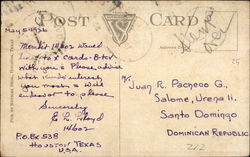 POST CARD
May 5-1926
Member 14602 would
like to x cards - B-ter
with you & Please advise
what kinds interest
you most & will
endeavor to please
Sincerely
E. L. Floyd
14602
P.O. Bx 538
Houston Texas
U.S.A.
Mr. Juan R. Pacheco G.,
Salome, Urena 11.
Santo Domingo
Dominican Republic
212